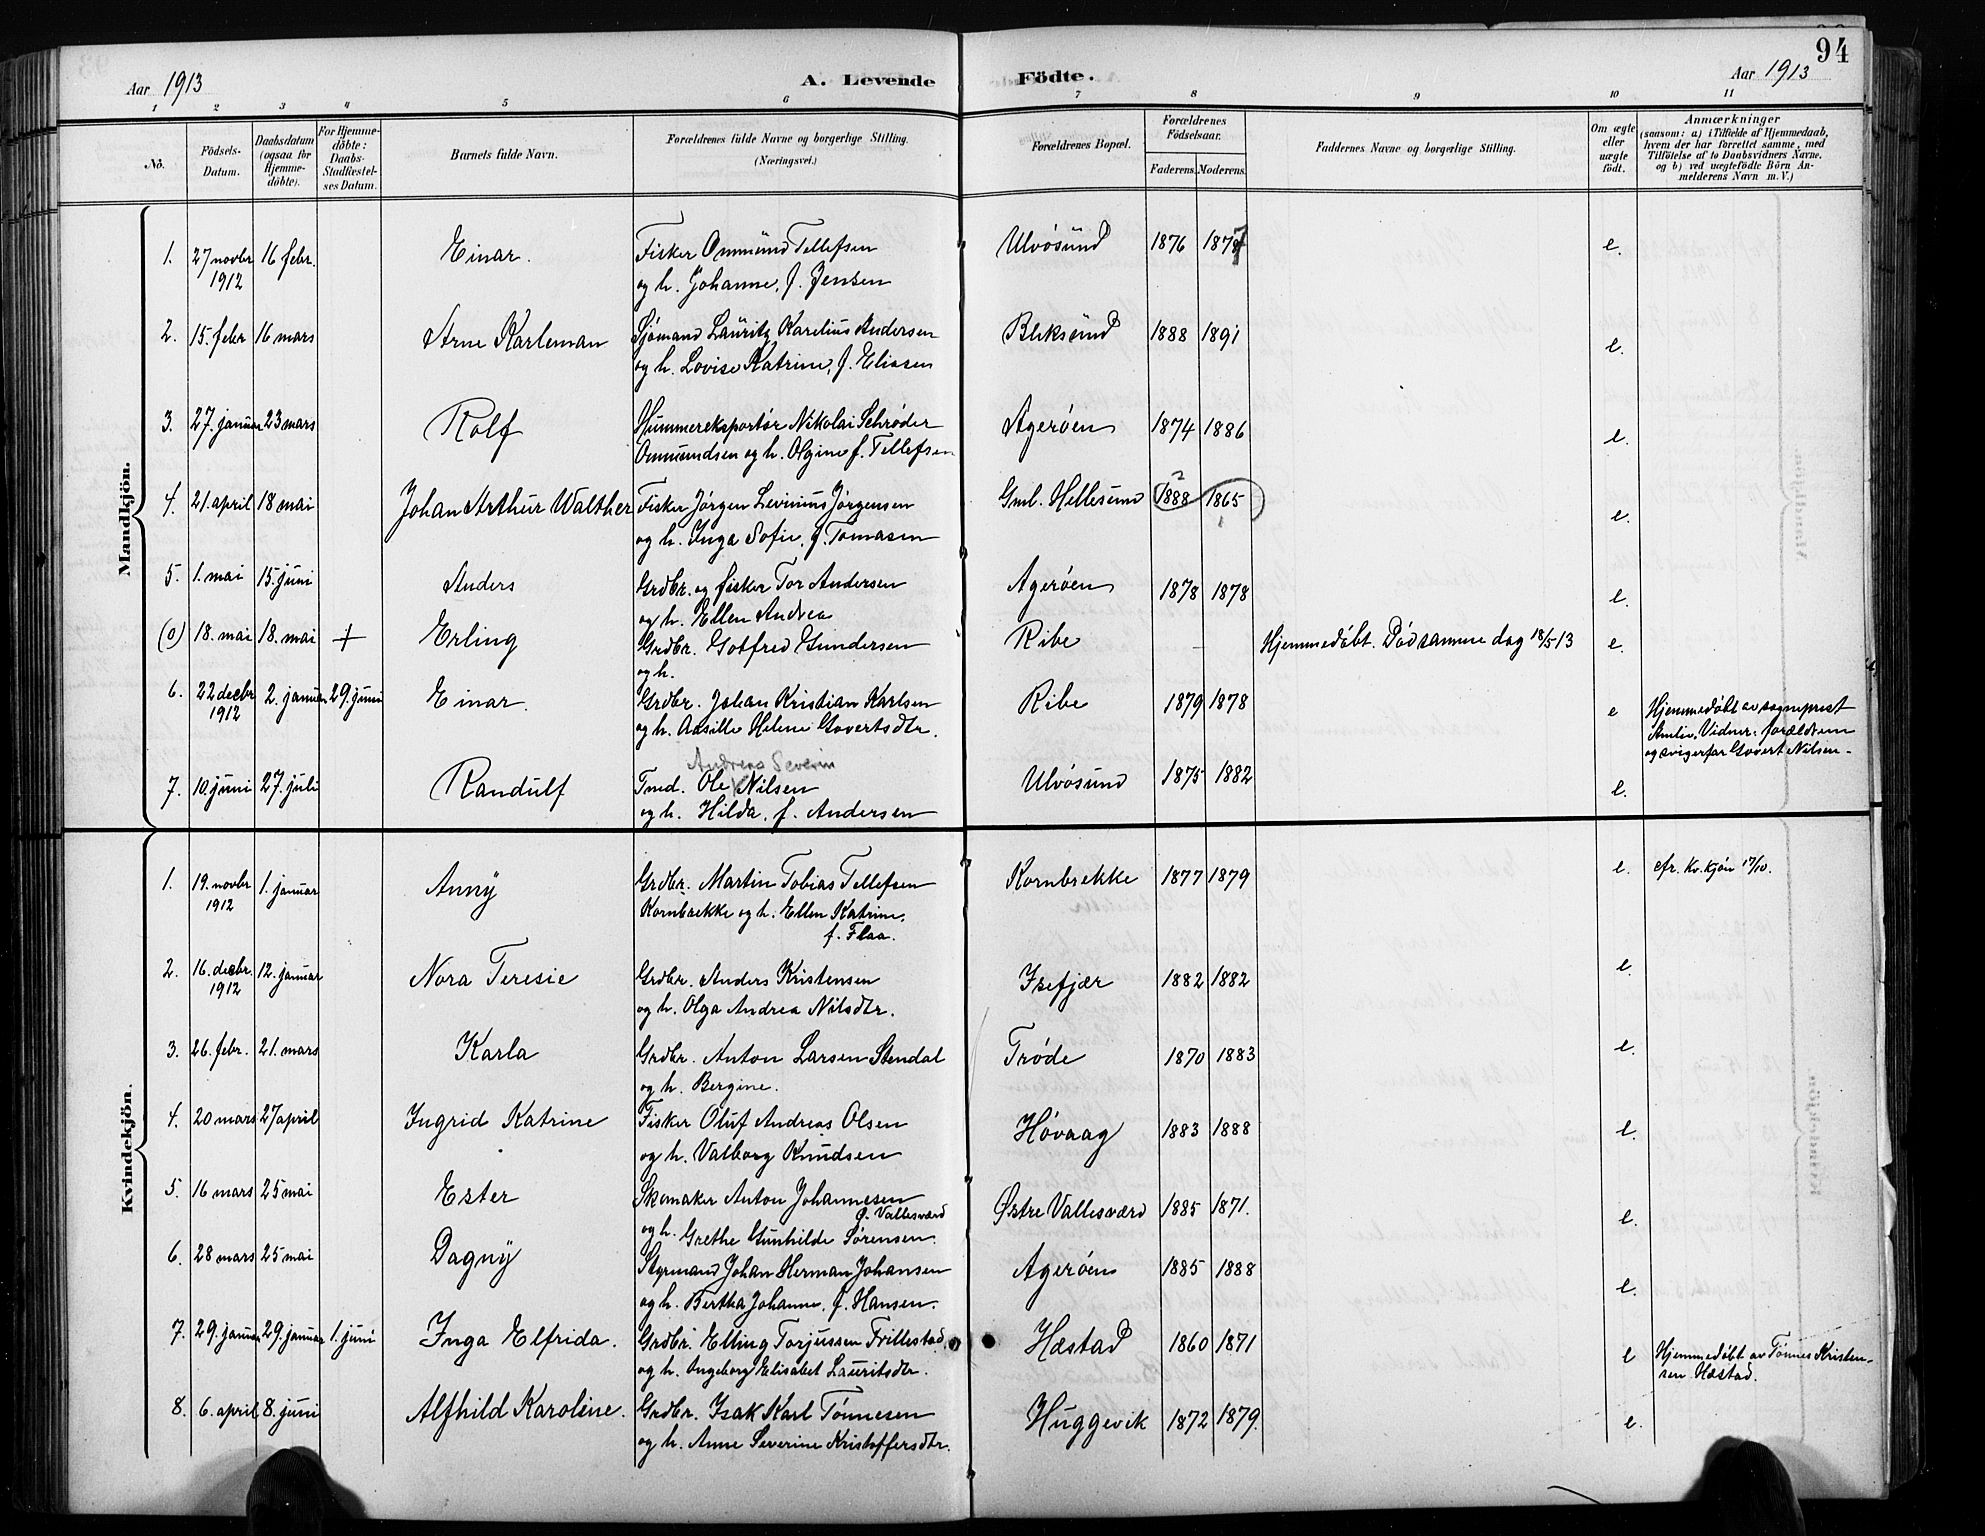 94
Aar 1913 A. Levende Födte. Aar 1913
1 2 3 4 5 6 7 8 9 10 11
No. Födsels-Datum. Daabsdatum (ogsaa for Hjemme-döbte). For Hjemme-döbte: Daabs-Stadfestel-ses Datum. Barnets fulde Navn. Forældrenes fulde Navne og borgerlige Stilling. (Næringsvei.) Forældrenes Bopæl. Forældrenes Födselsaar. Faderens. Moderens. Faddernes Navne og borgerlige Stilling. Om ægte eller uægte födt. Anmærkninger (saasom: a) i Tilfælde af Hjemmedaab, hvem der har forrettet samme, med Tilföielse af to Daabsvidners Navne, og b) ved uægtefödte Börn An-melderens Navn m. V.)
Mandkjön.
1. 27 novbr 16 febr. Einar. Fisker Ommund Tellefsen Ulvøsund 1876 1877 e.
1912 og h. Johanne, f. Jensen
2. 15. febr 16 mars Arne Karleman Sjømand Lauritz Karelius Andersen Bliksund 1888 1891 e.
og h. Lovise Katrine, f. Eliasen
3. 27. januar 23 mars Rolf Hummereksportør Nikolai Schrøder Agerøen 1874 1886 e.
Ommundsen og h. Olgine f. Tellefsen
4. 21. april 18 mai Johan Arthur Walther Fisker Jørgen Levinius Jørgensen Gml. Hellesund 1888 1865 e.
og h. Inga Sofie, f. Tomasen
5. 1. mai 15. juni Anders Grdbr. og fisker Tor Andersen Agerøen 1878 1878 e.
og h. Ellen Andrea
(0) 18. mai 18. mai + Erling Grdbr. Gotfred Gundersen Ribe – Hjemmedøbt. Død samme dag 18/5 13 e.
og h.
6. 22 decbr 2. januar 29. juni Einar. Grdbr. Johan Kristian Karlsen Ribe 1879 1878 e Hjemmedøbt av sogneprest
1912 og h. Aasille Helene Govertsdtr. Amlie, Vidner: forældrene
og svigerfar Govert Nilsen.
Andreas Severin
7. 10. juni 27. juli Randulf Tmd. Ole Nilsen Ulvøsund 1875 1882 e.
og h. Hilda, f. Andersen
Kvindekjön.
1. 19. novbr 1. januar Anny Grdbr. Martin Tobias Tellefsen Kornbrekke 1877 1879 e. cfr. Kv. kjøn 17/10.
1912 Kornbrekke og h. Ellen Katrine,
f. Flaa.
2. 16. decbr 12. januar Nora Teresie Grdbr. Anders Kristensen Isefjær 1882 1882 e.
1912 og h. Olga Andrea Nilsdtr.
3. 26. febr. 21. mars Karla Grdbr. Anton Larsen Stendal Trøde 1870 1883 e.
og h. Bergine.
4. 20 mars 27 april Ingrid Katrine Fisker Oluf Andreas Olsen Høvaag 1883 1888 e.
og h. Valborg Knudsen
5. 16 mars 25 mai Ester Skomaker Anton Johannesen Østre Vallesværd 1885 1871. e.
Ø. Vallesværd
og h. Grethe Gunhilde Sørensen.
6. 28 mars 25 mai Dagny Styrmand Johan Herman Johansen Agerøen 1885 1888 e.
og h. Bertha Johanne, f. Hansen.
7. 29. januar 29. januar 1. juni Inga Elfrida. Grdbr. Elling Torjussen Frillestad Hæstad 1860 1871 e Hjemmedøbt av Tønnes Kristen-
og h. Ingeborg Elisabet Lauritsdtr. sen Hæstad.
8. 6. april 8. juni Alfhild Karoline. Grdbr. Isak Karl Tønnesen Huggevik 1872 1879. e.
og h. Anne Severine Kristoffersdtr.